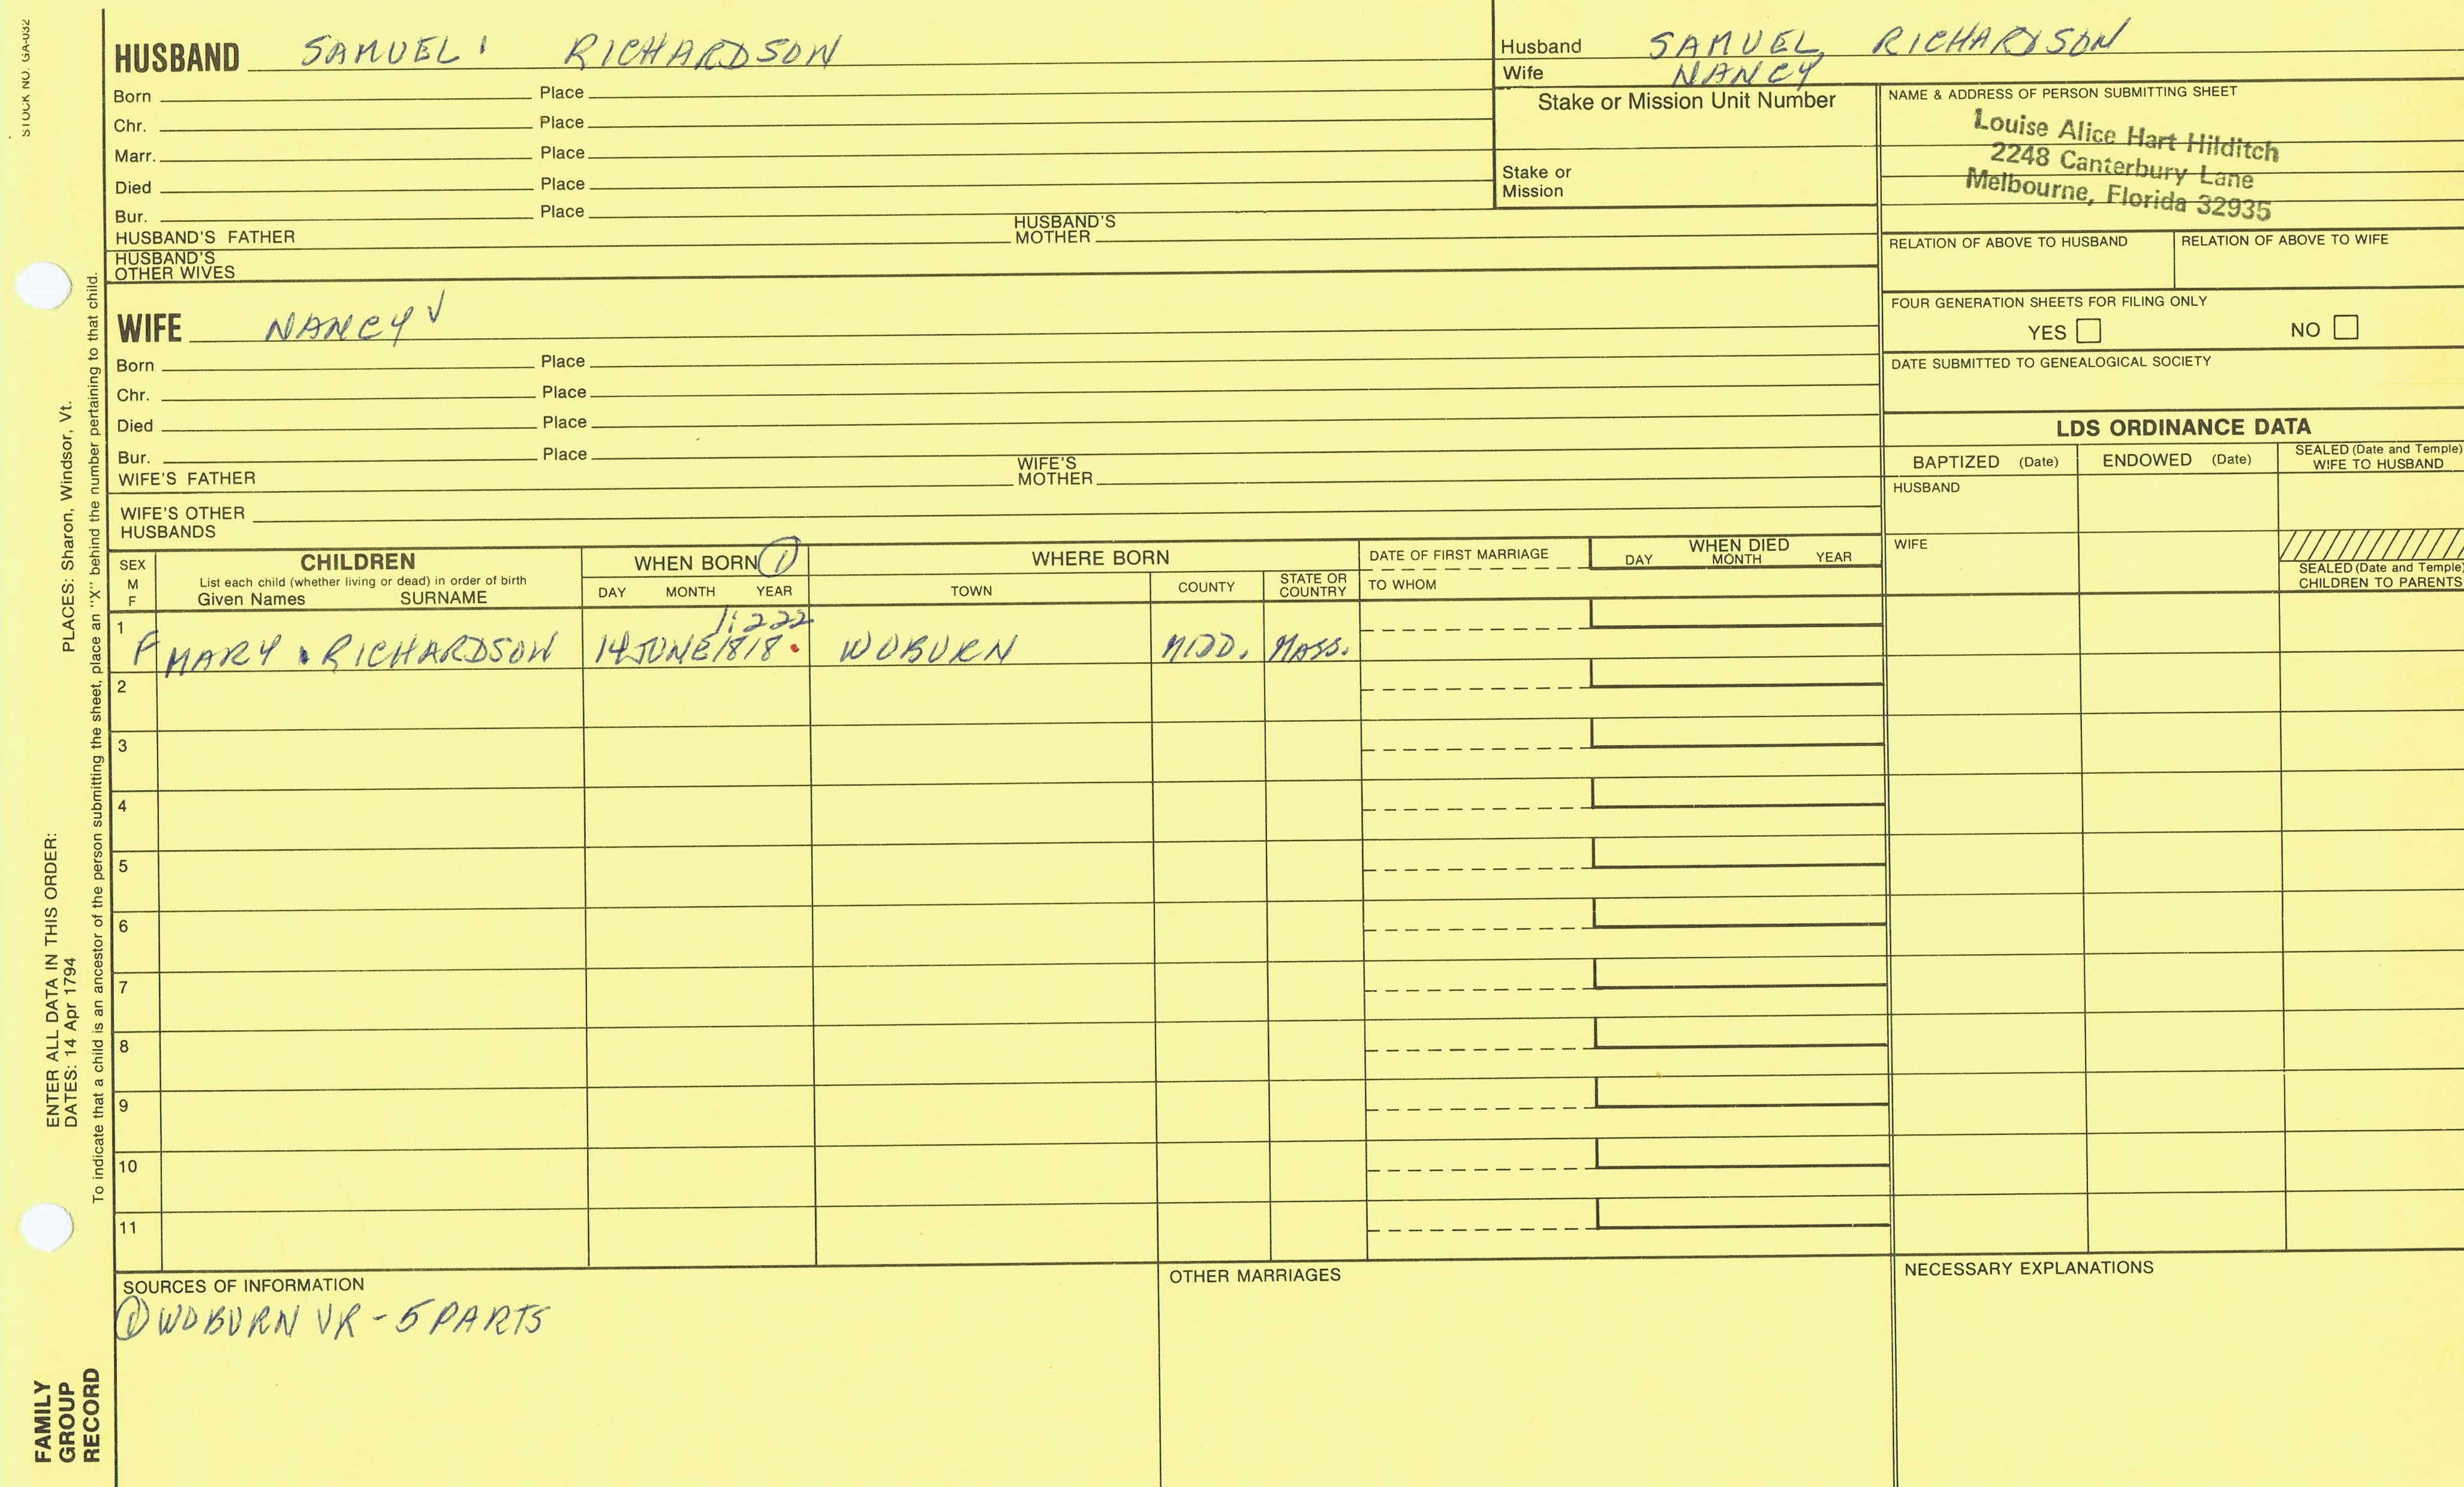 STOCK NO. GA-032
HUSBAND SAMUEL RICHARDSON
Born Place
Chr. Place
Marr. Place
Died Place
Bur. Place
HUSBAND'S FATHER HUSBAND'S MOTHER
HUSBAND'S OTHER WIVES
Husband SAMUEL RICHARDSON
Wife NANCY
Stake or Mission Unit Number
Stake or Mission
NAME & ADDRESS OF PERSON SUBMITTING SHEET
Louise Alice Hart Hilditch
2248 Canterbury Lane
Melbourne, Florida 32935
RELATION OF ABOVE TO HUSBAND RELATION OF ABOVE TO WIFE
FOUR GENERATION SHEETS FOR FILING ONLY
YES NO
DATE SUBMITTED TO GENEALOGICAL SOCIETY
WIFE NANCY √
Born Place
Chr. Place
Died Place
Bur. Place
WIFE'S FATHER WIFE'S MOTHER
WIFE'S OTHER HUSBANDS
LDS ORDINANCE DATA
BAPTIZED (Date) ENDOWED (Date) SEALED (Date and Temple) WIFE TO HUSBAND
HUSBAND
WIFE
SEALED (Date and Temple) CHILDREN TO PARENTS
SEX M F CHILDREN WHEN BORN ① WHERE BORN DATE OF FIRST MARRIAGE WHEN DIED
List each child (whether living or dead) in order of birth
Given Names SURNAME DAY MONTH YEAR TOWN COUNTY STATE OR COUNTRY TO WHOM DAY MONTH YEAR
1:222
1 F MARY RICHARDSON 14 JUNE 1818 WOBURN MIDD. MASS.
2
3
4
5
6
7
8
9
10
11
SOURCES OF INFORMATION
① WOBURN VR - 5 PARTS
OTHER MARRIAGES
NECESSARY EXPLANATIONS
ENTER ALL DATA IN THIS ORDER:
DATES: 14 Apr 1794 PLACES: Sharon, Windsor, Vt.
To indicate that a child is an ancestor of the person submitting the sheet, place an "X" behind the number pertaining to that child.
FAMILY
GROUP
RECORD